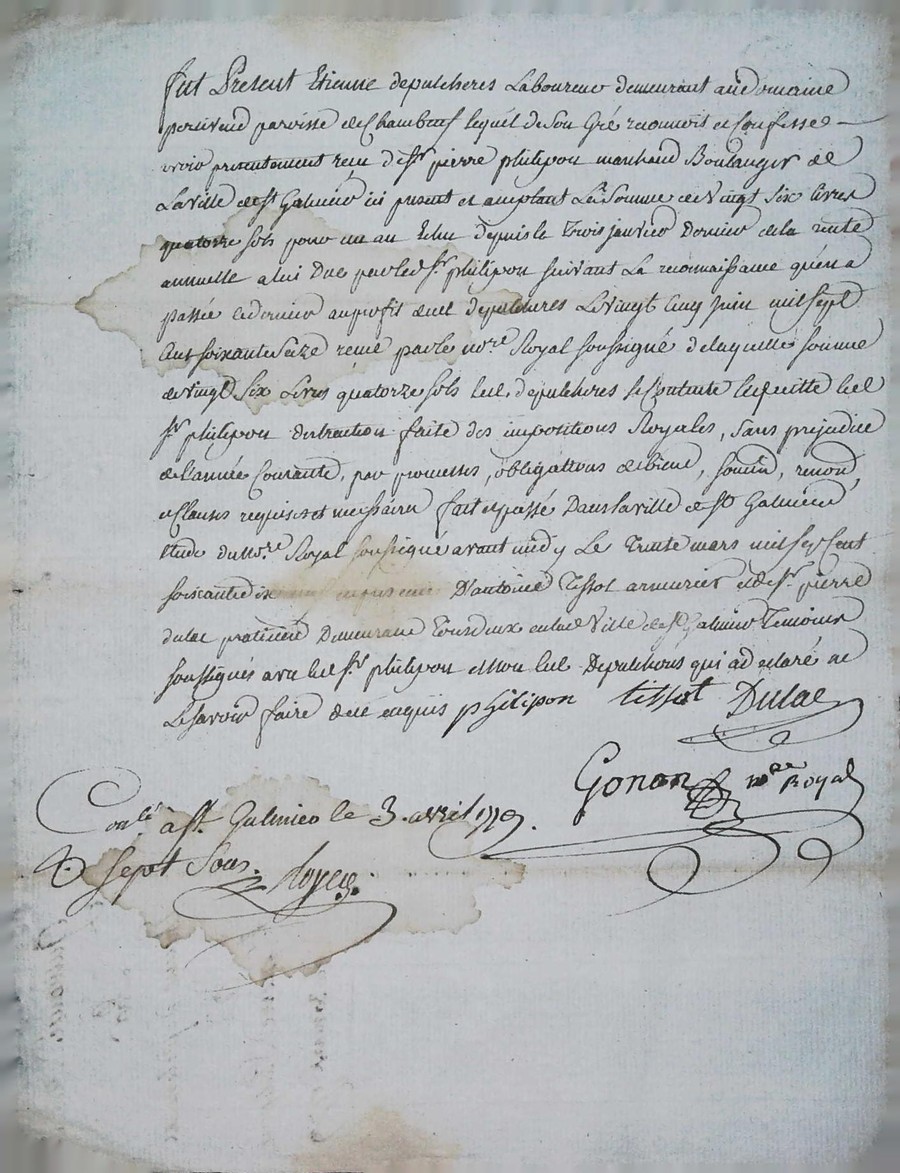 fut Present Etienne depulcheres Laboureur demeurant au domaine
paroisse de Chambeuf lequel de Son Gré reconnoit et Confesse
avoir presentement reçu de Sr. pierre philipon marchand Boulanger de
La ville de St Galmier ici present et acceptant La Somme de Vingt Six livres
quatorze Sols pour un an Echu depuis le Trois janvier Dernier de la rente
annuelle a lui Due par led Sr. philipon suivant La reconnaissance qu'en a
passée ce dernier au profit dud depulcheres Le vingt cinq juin mil Sept
Cent soixante Seize reçue par le nore. Royal soussigné delaquelle somme
de vingt Six Livres quatorze Sols led. depulcheres se Contente En quitte led
Sr philipon distraction faite des impositions Royales, Sans prejudice
de l'année Courante, par promesses, obligations de biens, Soumn, renond
et Clauses requises et necessaires fait et passé Dans la ville de St Galmier
étude du Nore. Royal soussigné avant midy Le Trente mars mil sept Cent
soixante dix en presence D'antoine Tissot armurier et de Sr. pierre
dulac praticien Demeurant Tous deux en lad Ville de St Galmier Temoins
soussignés avec led Sr. philipon et non led Depulcheres qui a declaré ne
Le savoir faire de ce enquis philipon tissot Dulac
Gonon nore Royal
Conlé a St. Galmier le 3. avril 1779.
R. Sept Sous.